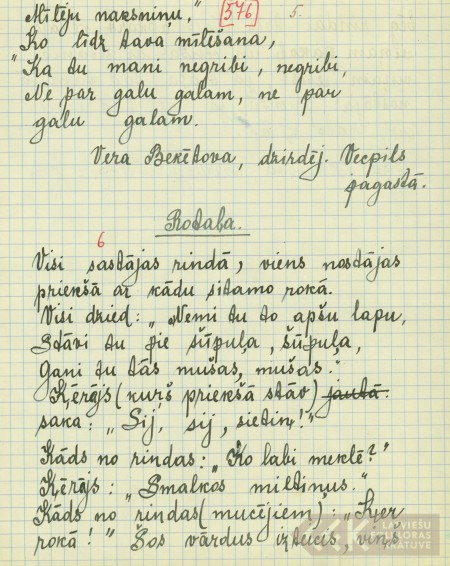 Mīlēju naksniņu," 376 5.
"Ko līdz tava mīlēšana,
"Ka tu mani negribi, negribi,
Ne par galu galam, ne par
galu galam.
Vera Bekētova, dzirdēj. Vecpils
pagastā.
Rotaļa.
6
Visi sastājas rindā, viens nostājas
priekšā ar kādu sitamo rokā.
Visi dzied: „Ņemi tu to apšu lapu,
Stāvi tu pie šūpuļa, šūpuļa,
Gani tu tās mušas, mušas."
Ķērājs (kurš priekšā stāv) jautā.
saka: „Sij, sij, sietiņ!"
Kāds no rindas: „Ko labi meklē?"
Ķērājs: „Smalkos miltiņus."
Kāds no rindas (mucējiem): „Ķer
rokā!" Šos vārdus izteicis, viņš
LATVIEŠU
FOLKLORAS
KRĀTUVE